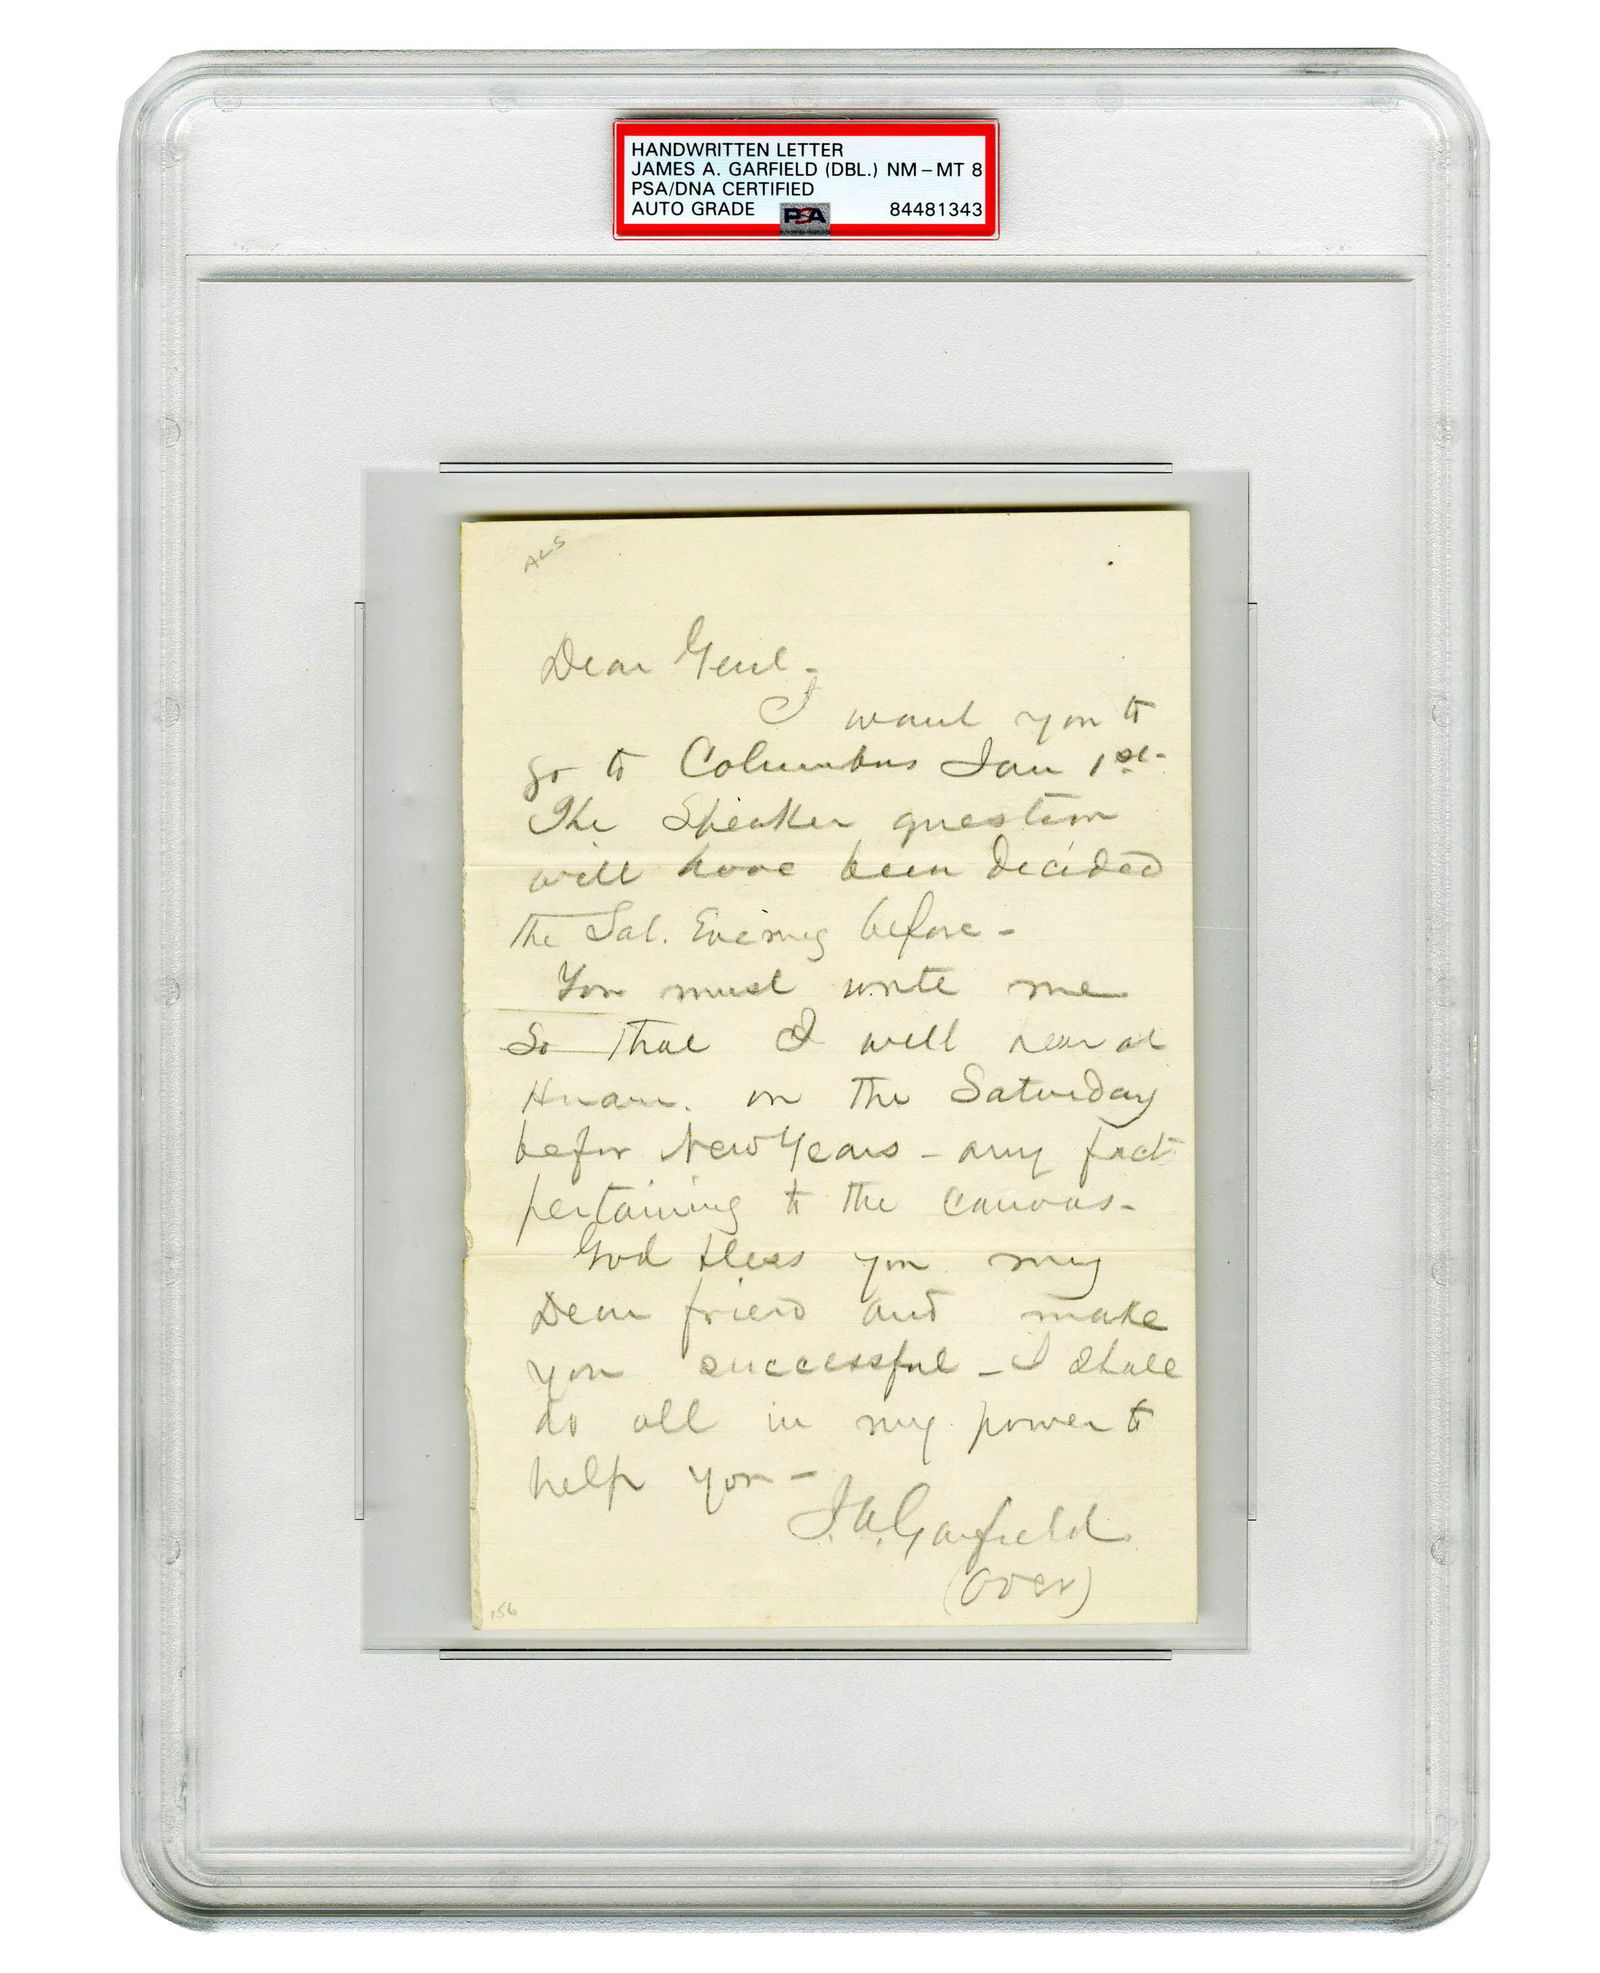 HANDWRITTEN LETTER
JAMES A. GARFIELD (DBL.) NM-MT 8
PSA/DNA CERTIFIED
AUTO GRADE PSA 84481343
ALS
Dear Genl -
I want you to
go to Columbus Jan 1st-
The Speaker question
will have been decided
the Sat. Evening before -
You must write me
So that I will hear at
on the Saturday
befor New Years - any fact
pertaining to the canvas-
God bless you my
Dear friend and make
you successful - I shall
do all in my power to
help you -
J. A. Garfield
(over)
156